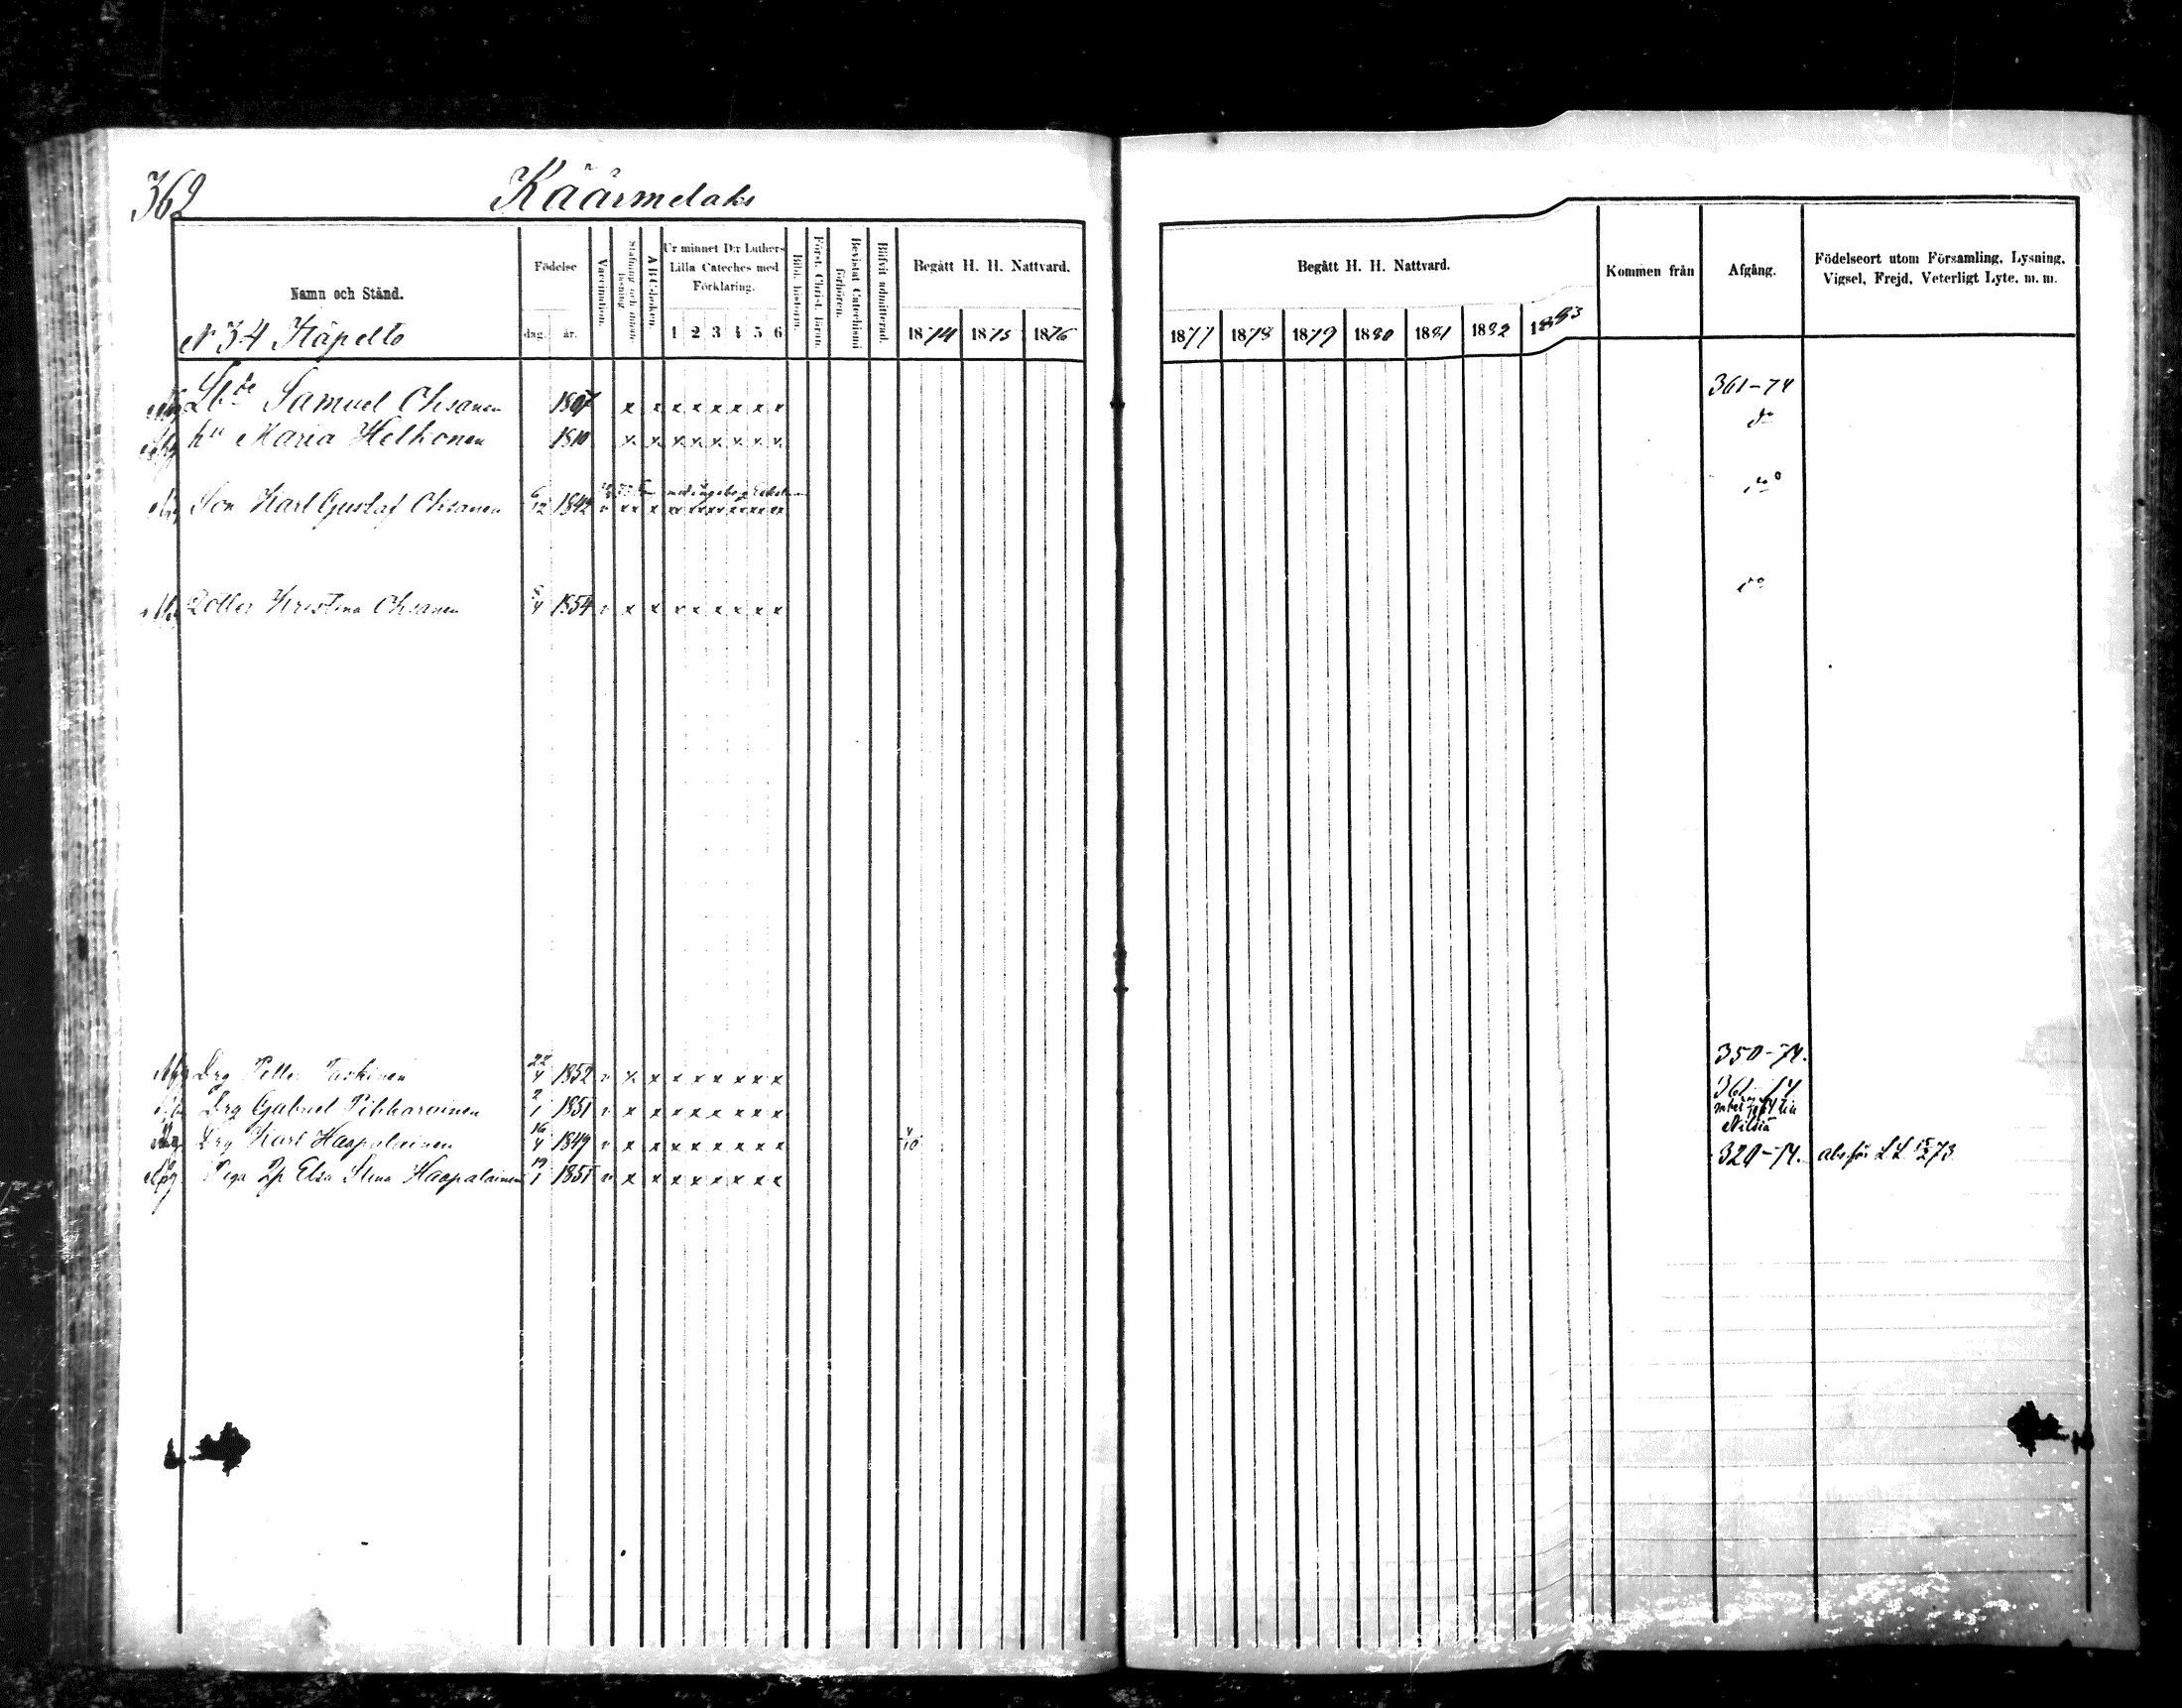 362
Käärmelaks
Namn och Stånd.
Födelse
dag. år.
Vaccination.
ABC-boken
Ur minnet D:r Luthers
Lilla Cateches med
Förklaring.
1 2 3 4 5 6
Bibl. historia.
Bevistat Catechismi
förhören.
Blifvit admitterad.
Begått H. H. Nattvard.
1874 1875 1876
Begått H. H. Nattvard.
1877 1878 1879 1880 1881 1882 1883
Kommen från
Afgång.
Födelseort utom Församling, Lysning,
Vigsel, Frejd, Veterligt Lyte, m. m.
N 34
Samuel Ohsanen 1807 x x x x x x x x 361-74
hu Maria Helkonen 1810 x x x x x x x x do
Son Karl Gustaf Ohsanen 6/12 1842 do
Dotter Kristina Ohsanen 1854 x x x x x x x x do
Drg Petter 22/4 1852 x x x x x x x x 350-74.
Drg Gabriel Pihkarainen 2/1 1851 x x x x x x x x
Nilsiä
Drg Karl Haapalainen 16/4 1849 x x x x x x x x 4/10
Piga Elsa Stina Haapalainen 19/1 1851 x x x x x x x x 320-74.